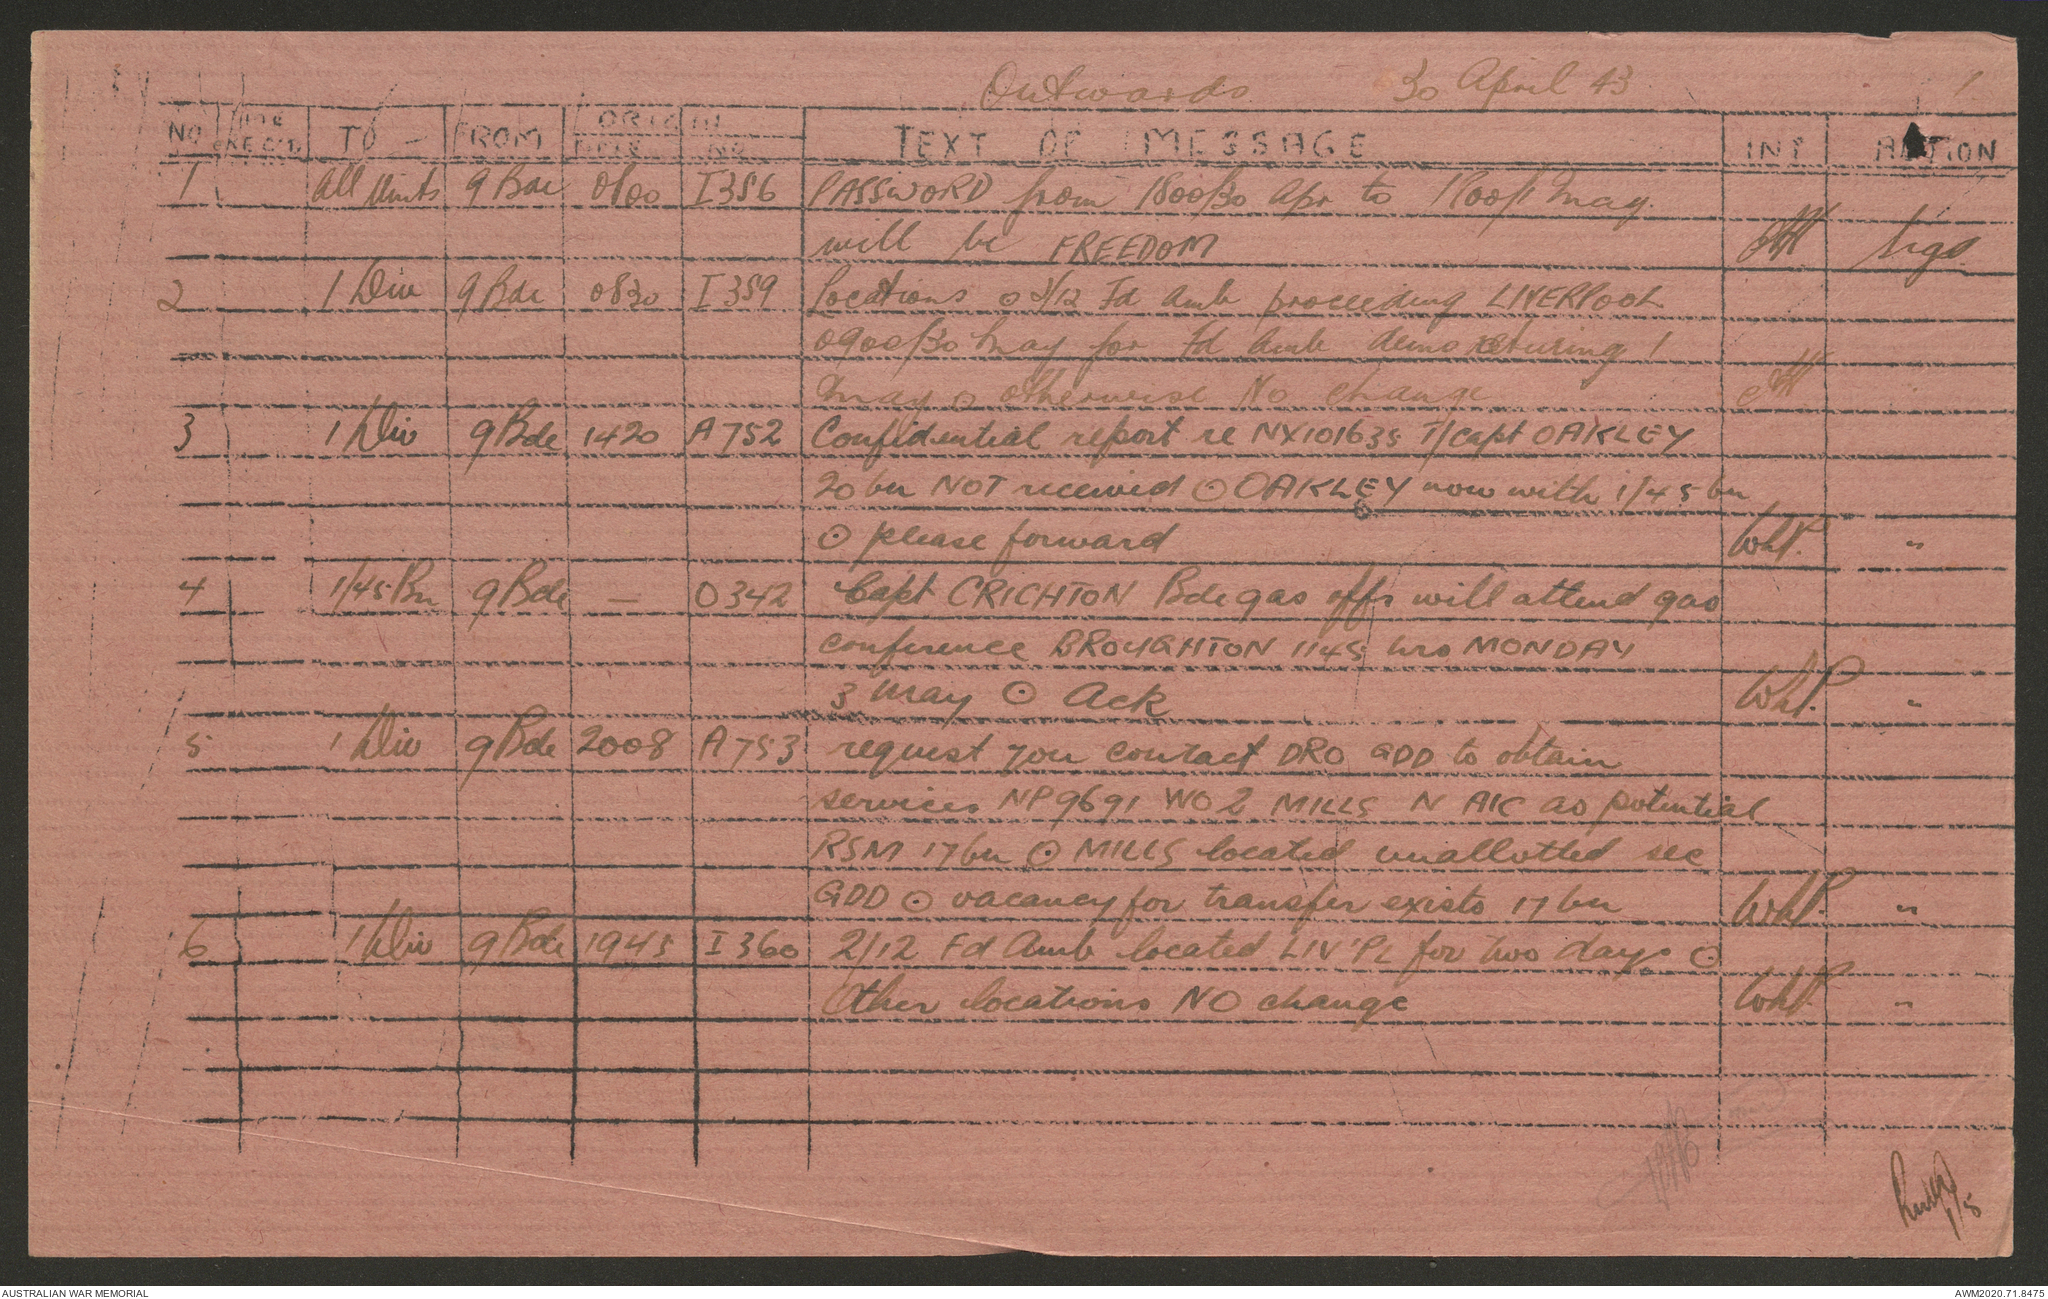 Outwards 30 April 43 1
NO TIME REC'D TO FROM ORIGIN TEXT OF MESSAGE INT ACTION
TIME NO
1 All Units 9 Bde 0800 I356 PASSWORD from 1800/30 Apr to 1800/1 May
will be FREEDOM
2 1 Div 9 Bde 0830 I359 Locations ⊙ 2/12 Fd Amb proceeding LIVERPOOL
0900/30 May for Fd Amb demo returing 1
May ⊙ otherwise No change
3 1 Div 9 Bde 1420 A752 Confidential report re NX101635 T/Capt OAKLEY
20 bn NOT received ⊙ OAKLEY now with 1/45 bn
⊙ please forward WhP. "
4 1/45 Bn 9 Bde — O342 Capt CRICHTON Bde gas offr will attend gas
conference BROUGHTON 1145 hrs MONDAY
3 May ⊙ Ack WhP. "
5 1 Div 9 Bde 2008 A753 request you contact DRO GDD to obtain
services NP9691 WO2 MILLS N AIC as potential
RSM 17 bn ⊙ MILLS located unallotted sec
GDD ⊙ vacancy for transfer exists 17 bn WhP. "
6 1 Div 9 Bde 1945 I360 2/12 Fd Amb located LIV'PL for two days ⊙
Other locations NO change WhP. "
1/5
AUSTRALIAN WAR MEMORIAL AWM2020.71.8475